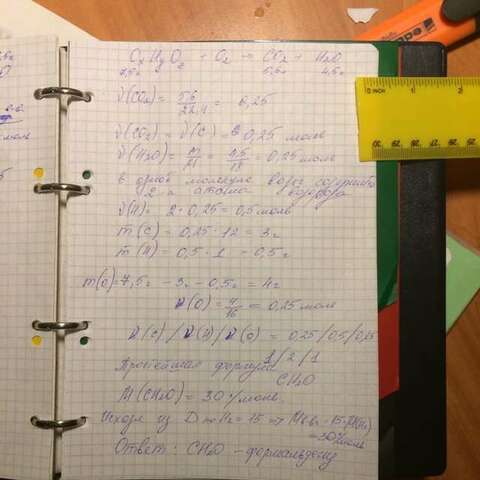 CxHyOz + O2 → CO2 + H2O
7,5г 5,6л 4,5г
ν(CO2) = 5,6/22,4 = 0,25
ν(CO2) = ν(C) = 0,25 моль
ν(H2O) = m/M = 4,5/18 = 0,25 моль
в одной молекуле воды содержится
2 атома водорода
ν(H) = 2·0,25 = 0,5 моль
m(C) = 0,25·12 = 3г
m(H) = 0,5·1 = 0,5г
m(O) = 7,5г - 3г - 0,5г = 4г
ν(O) = 4/16 = 0,25 моль
ν(C)/ν(H)/ν(O) = 0,25/0,5/0,25
1/2/1
Простейшая формула
CH2O
M(CH2O) = 30 г/моль
Исходя из D по H2 = 15 ⇒
= 30 г/моль
Ответ: CH2O - формальдегид
0 INCH 1
30 29 28 27 26 25
моль